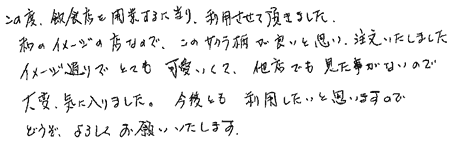 この度、飲食店を開業するに当り、利用させて頂きました。
和のイメージの店なので、このサクラ柄が良いと思い、注文いたしました
イメージ通りでとても可愛いくて、他店でも見た事がないので
大変、気に入りました。今後とも利用したいと思いますので
どうぞ、よろしくお願いいたします。